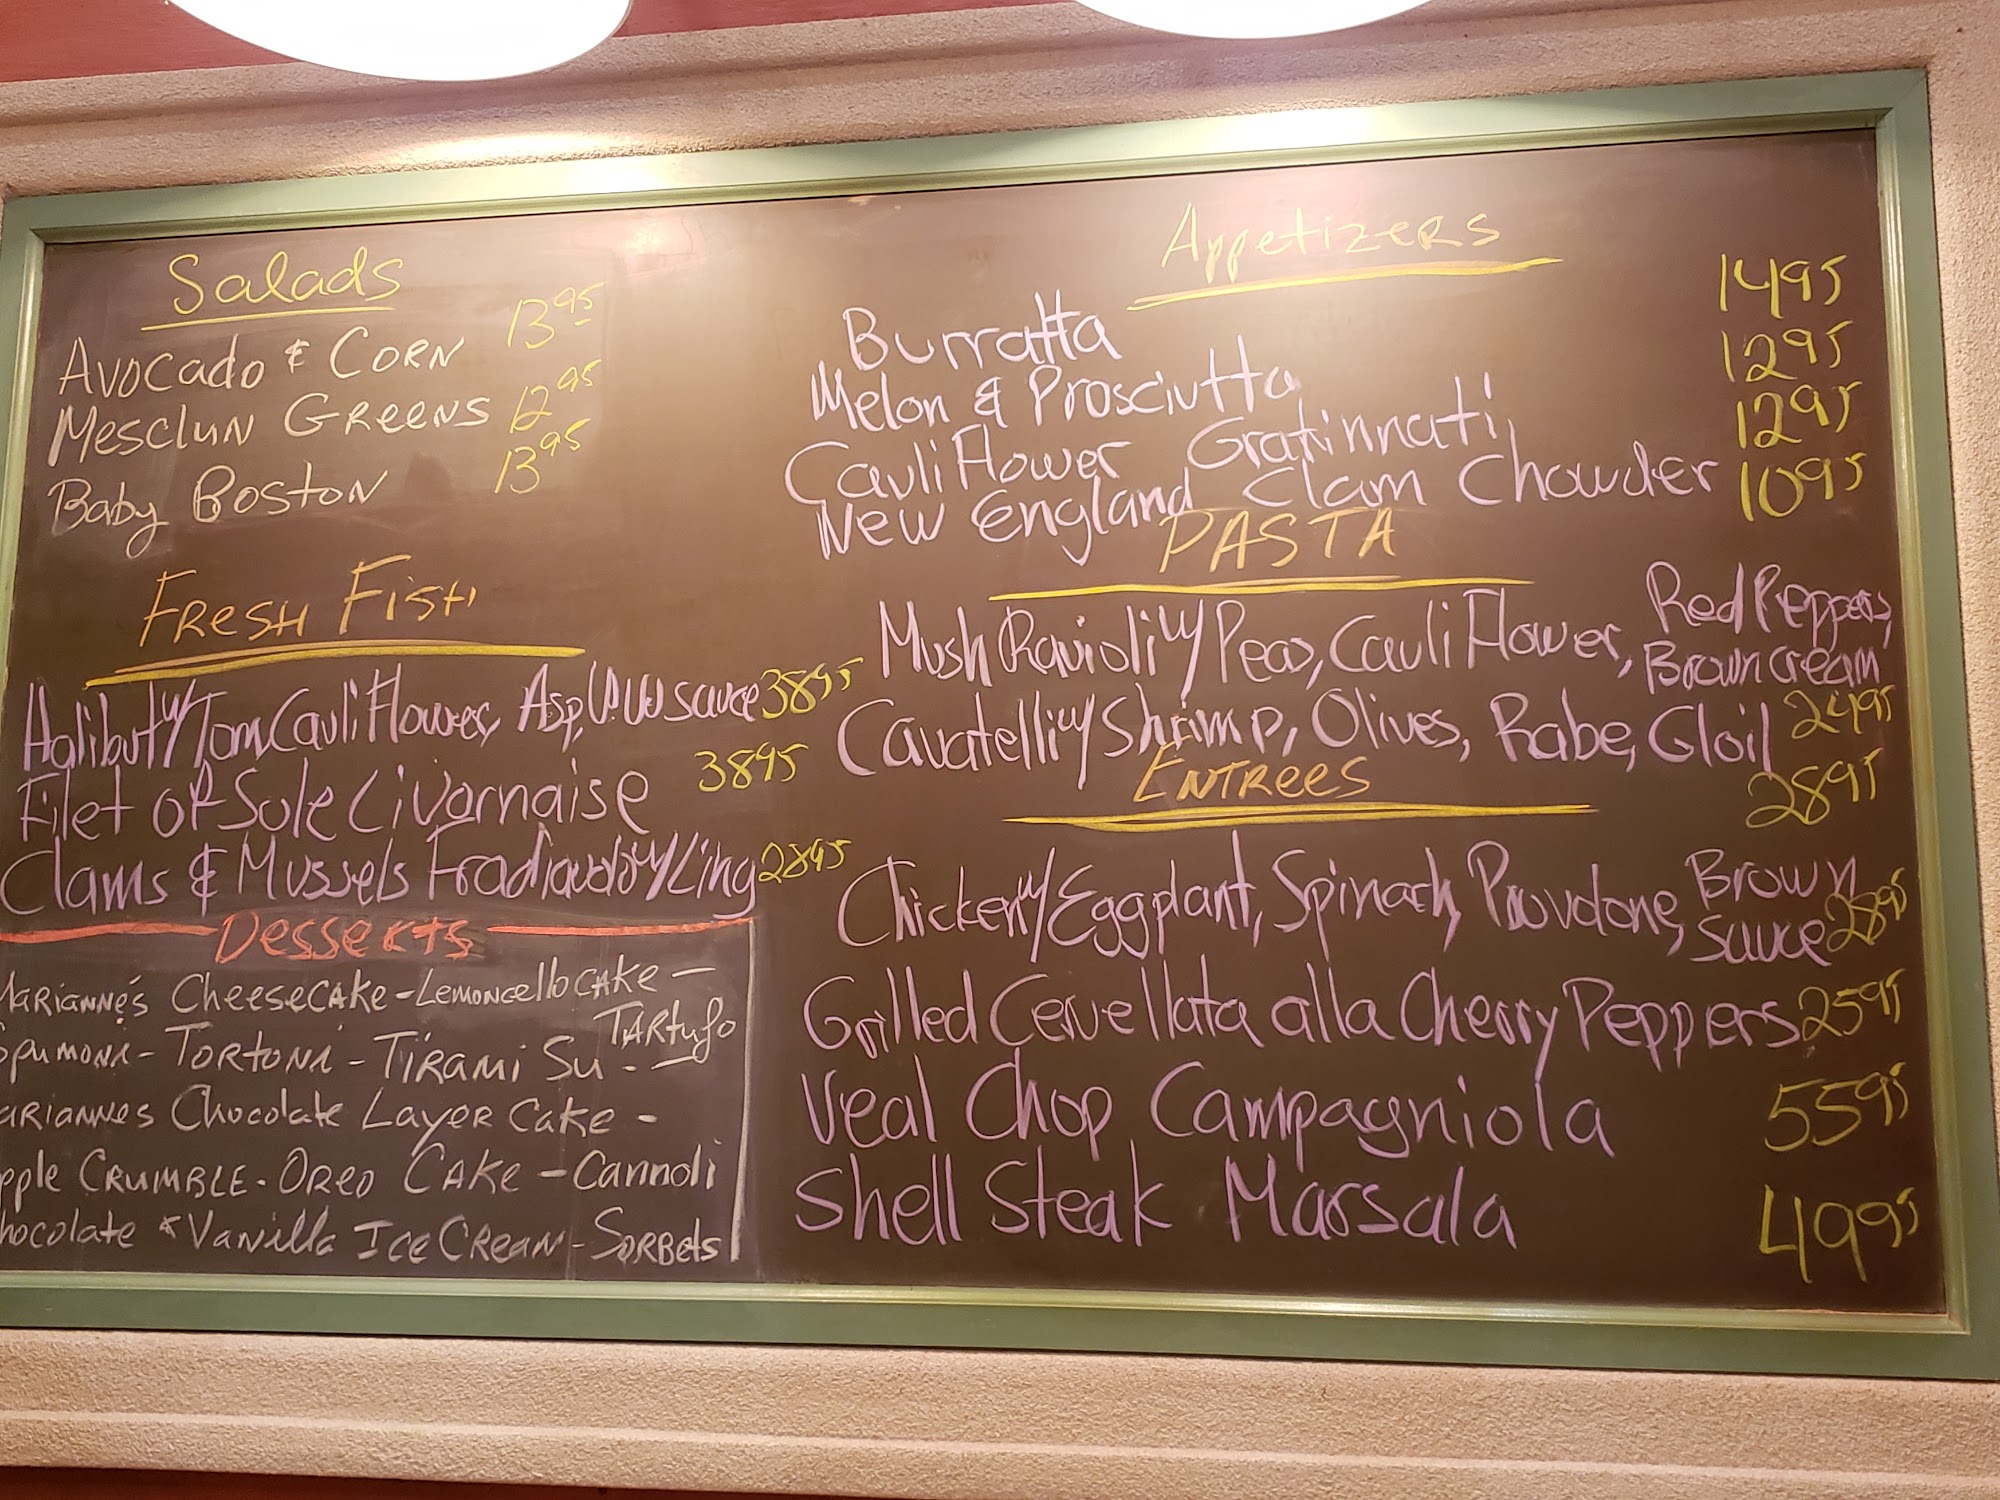 Salads
Avocado & Corn 13.95
Mesclun Greens 12.95
Baby Boston 13.95
Fresh Fish
Halibut w/ Tom, Cauliflower, Asp, W.W sauce 3895
Filet of Sole Livornaise 3895
Clams & Mussels Fradiavolo w/ Ling 2895
Desserts
Marianne's Cheesecake - Lemoncello cake -
Spumoni - Tortoni - Tirami Su - Tartufo
Mariannes Chocolate Layer Cake -
Apple Crumble - Oreo Cake - Cannoli
Chocolate & Vanilla Ice Cream - Sorbets
Appetizers
Burratta 1495
Melon & Prosciutto 1295
Cauliflower Gratinnati 1295
New England Clam Chowder 1095
PASTA
Mush Ravioli w/ Peas, Cauliflower, Red Peppers,
Brown cream 2495
Cavatelli w/ Shrimp, Olives, Rabe, Gloil 2895
Entrees
Chicken w/ Eggplant, Spinach, Provolone, Brown
sauce 2895
Grilled Cervellata alla Cherry Peppers 2595
Veal Chop Campagniola 5595
Shell Steak Marsala 4995